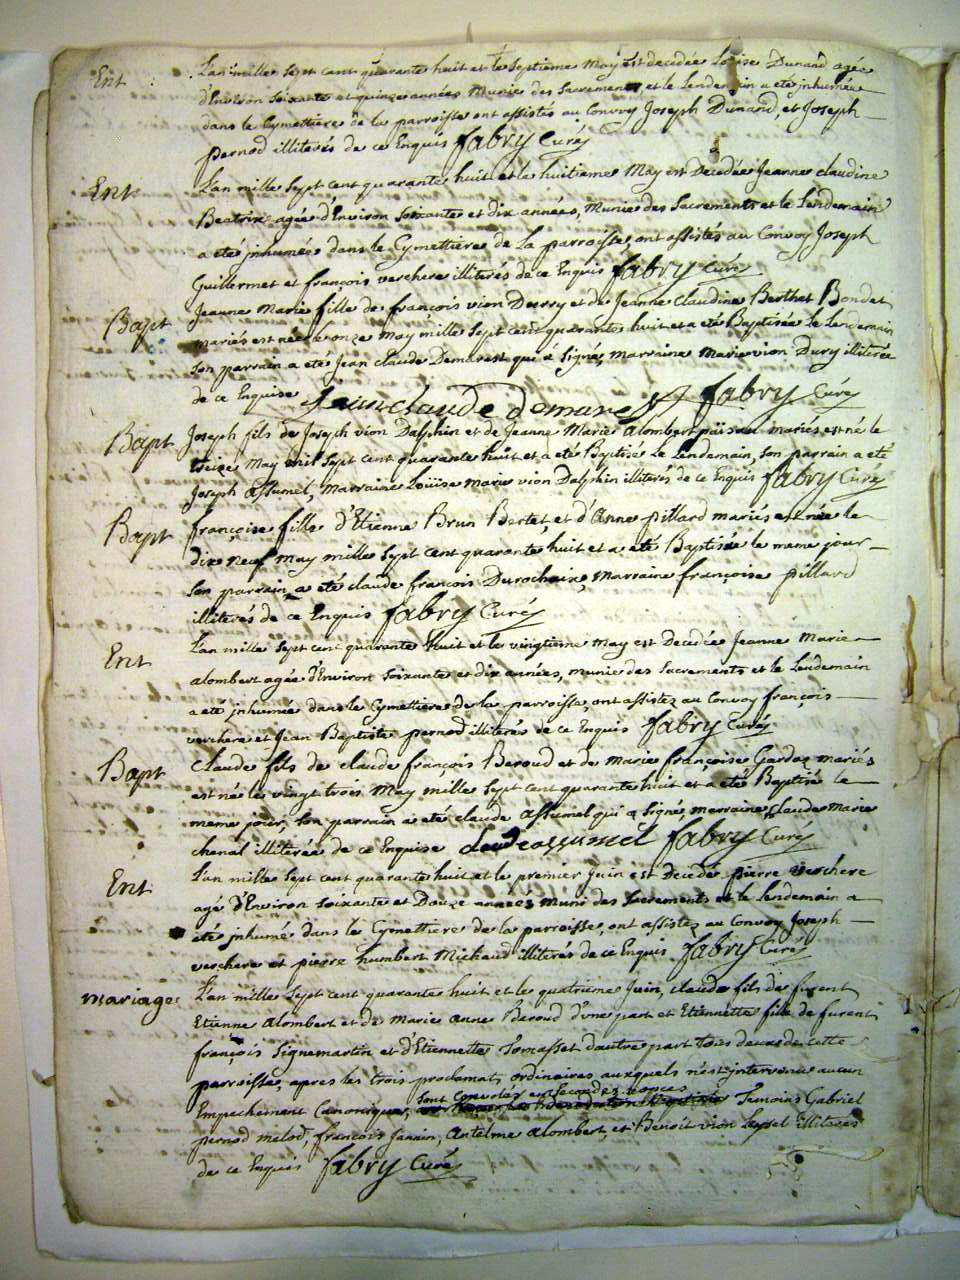 Ent L'an mille sept cent quarante huit et le septieme may est decedée Louise Dunand agée
d'Environ soixante et quinze années munie des sacrements et le Lendemain a eté jnhumée
dans le Cymettiere de la parroisse ont assistés au Convoy Joseph Dunand, et Joseph
pernod illiterés de ce Enquis fabry Curé
Ent L'an mille sept cent quarante huit et le huitieme may est Decedée Jeanne claudine
Beatrix agée d'Environ soixante et dix années, munie des sacrements et le Lendemain
a eté jnhumée dans le Cymettiere de La parroisse, ont assistés au Convoy Joseph
Guillermet et françois verchere illiterés de ce Enquis fabry Curé
Bapt Jeanne Marie fille de françois vion Derry et de Jeanne Claudine Berthet Bondet
mariés est née le onze may mille sept cent quarante huit et a eté Baptisée le Lendemain
son parrain a eté Jean claude Demarest qui a signé, marraine Marie vion Dury illiterée
de ce Enquise Jean claude demarest fabry Curé
Bapt Joseph fils de Joseph vion Dalphin et de Jeanne Marie Alombert païsan mariés est né le
treize may mil sept cent quarante huit et a eté Baptisé le Lendemain, son parrain a eté
Joseph assumel, marraine Loüise marie vion Dalphin illiterés de ce Enquis fabry Curé
Bapt françoise fille d'Etienne Brun Bertet et d'Anne pillard mariés est née le
dix neuf may mille sept cent quarante huit et a eté Baptisée le meme jour
son parrain a eté claude françois Durochaix, marraine françoise pillard
illiterés de ce Enquis fabry Curé
Ent L'an mille sept cent quarante huit et le vingtieme may est Decedée Jeanne Marie
alombert agée d'Environ soixante et dix années, munie des sacrements et le Lendemain
a eté jnhumée dans le Cymettiere de la parroisse, ont assistez au Convoy françois
verchere et Jean Baptiste pernod illiterés de ce Enquis fabry Curé
Bapt Claude fils de claude françois Beroud et de marie françoise Gardaz mariés
est né le vingt trois may mille sept cent quarante huit et a eté Baptisé le
meme jour, son parrain a eté claude assumel qui a signé, marraine claude Marie
chenal illiterée de ce Enquise claude assumel fabry Curé
Ent L'an mille sept cent quarante huit et le premier juin est decedé pierre verchere
agé d'Environ soixante et Douze années muni des sacrements et le Lendemain a
eté jnhumé dans le Cymettiere de la parroisse, ont assistez au Convoy Joseph
verchere et pierre humbert Michaud illiterés de ce Enquis fabry Curé
mariage L'an mille sept cent quarante huit et le quatrieme juin, claude fils de furent
Etienne alombert et de Marie Anne Beroud d'une part et Etiennette fille de furent
françois signemartin et d'Etiennette Tomasset d'autre part tous deux de cette
parroisse, apres les trois proclamats ordinaires auxquels n'est jntervenu aucun
sont Convolés en secondes noces
Empechement Canonique, Temoins Gabriel
pernod melod, françois janin, antelme alombert, et Benoit vion illiteres
de ce Enquis fabry Curé